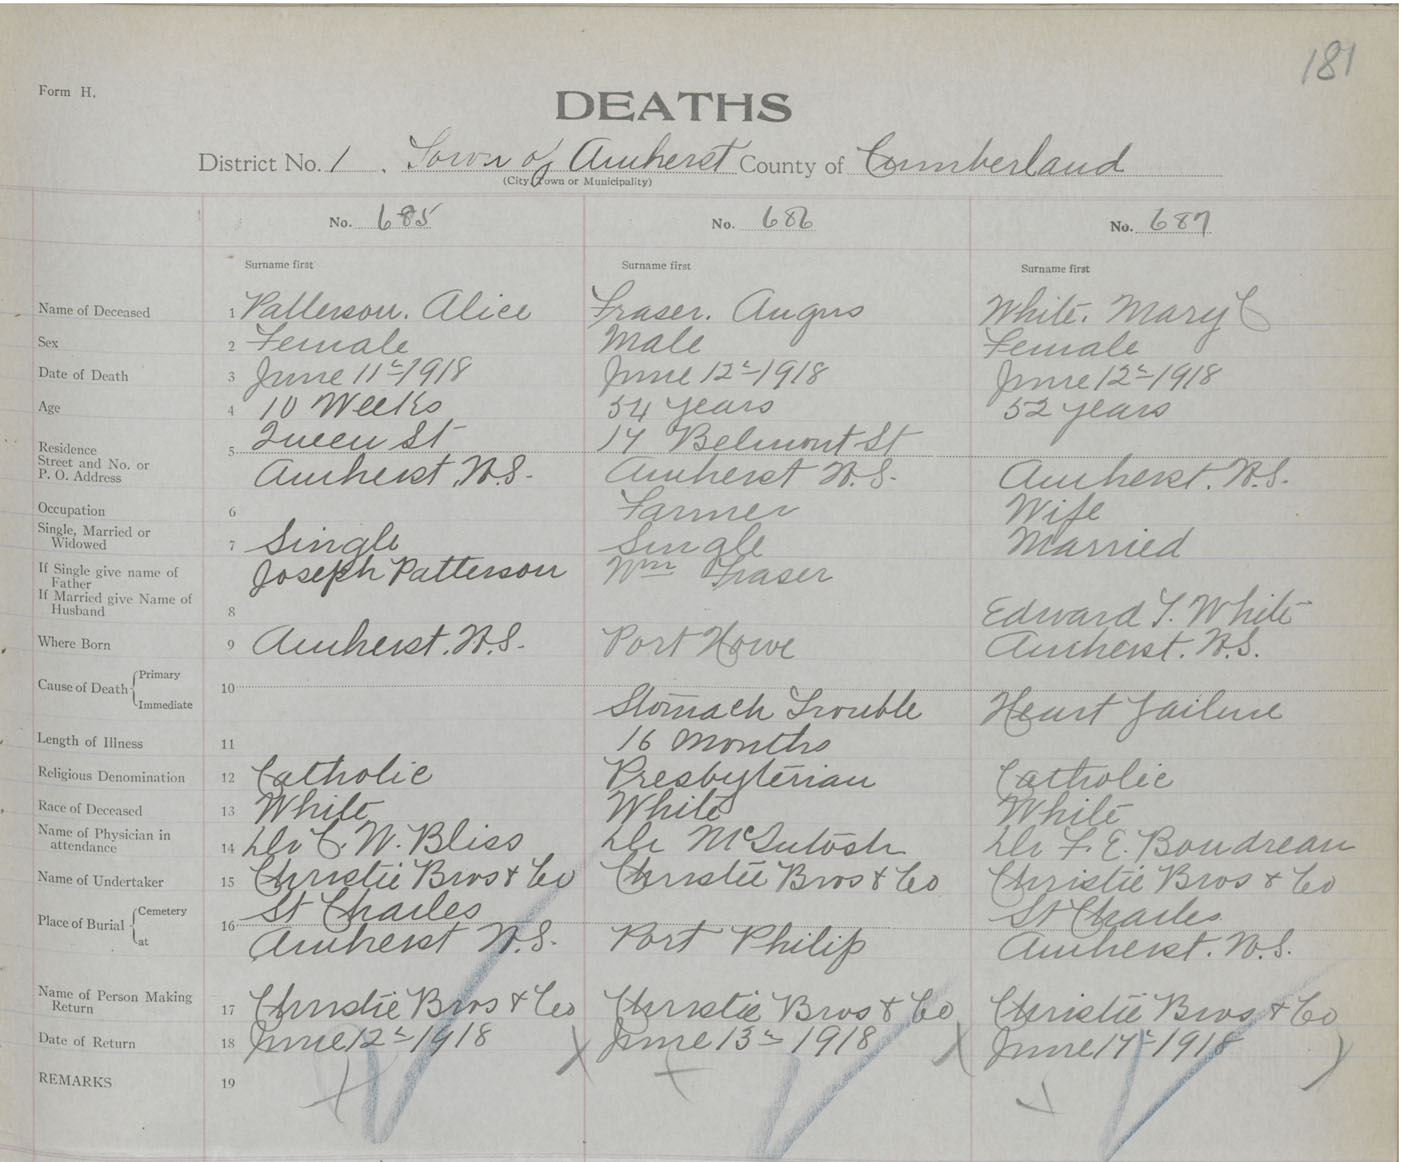 181
Form H.
DEATHS
District No. 1. Town of Amherst County of Cumberland
(City Town or Municipality)
No. 685 No. 686 No. 687
Surname first Surname first Surname first
Name of Deceased 1 Patterson. Alice Fraser. Angus White. Mary C
Sex 2 Female Male Female
Date of Death 3 June 11th 1918 June 12th 1918 June 12th 1918
Age 4 10 Weeks 54 years 52 years
Residence 5 Queen St 14 Belmont St
Street and No. or
P. O. Address Amherst. N.S. Amherst N.S. Amherst. N.S.
Occupation 6 Farmer Wife
Single, Married or
Widowed 7 Single Single Married
If Single give name of
Father Joseph Patterson Wm Fraser
If Married give Name of
Husband 8 Edward T. White
Where Born 9 Amherst. N.S. Port Howe Amherst. N.S.
Cause of Death Primary 10
Immediate Stomach Trouble Heart failure
Length of Illness 11 16 Months
Religious Denomination 12 Catholic Presbyterian Catholic
Race of Deceased 13 White White White
Name of Physician in
attendance 14 Dr C. W. Bliss Dr McIntosh Dr F. E. Boudreau
Name of Undertaker 15 Christie Bros & Co Christie Bros & Co Christie Bros & Co
Place of Burial Cemetery 16 St Charles St Charles
at Amherst N.S. Port Philip Amherst. N.S.
Name of Person Making
Return 17 Christie Bros & Co Christie Bros & Co Christie Bros & Co
Date of Return 18 June 12th 1918 June 13th 1918 June 14th 1918
REMARKS 19